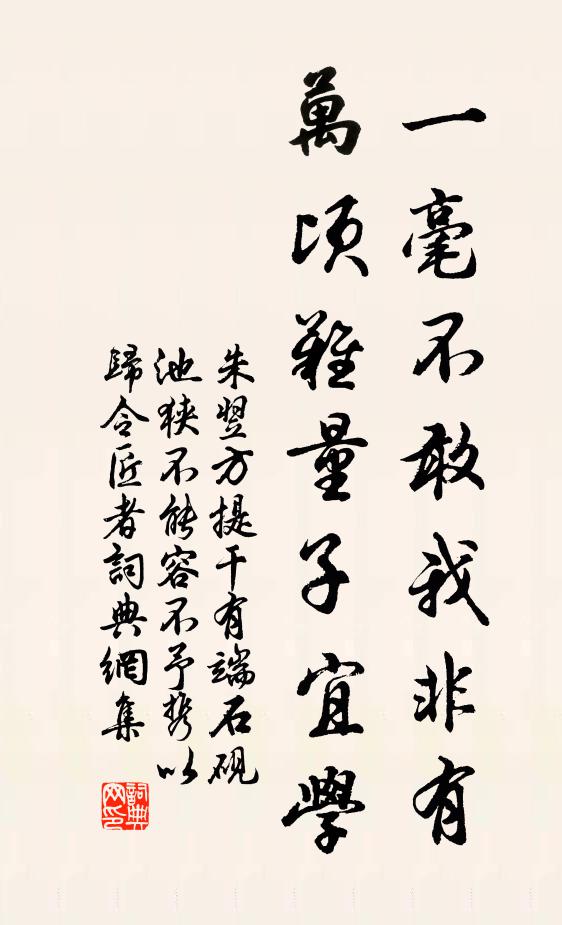 一毫不敢我非有
萬頃難量子宜學
朱翌方提干有端石硯
池狹不能容不予携以
歸令匠者詞典網集
詞典网印